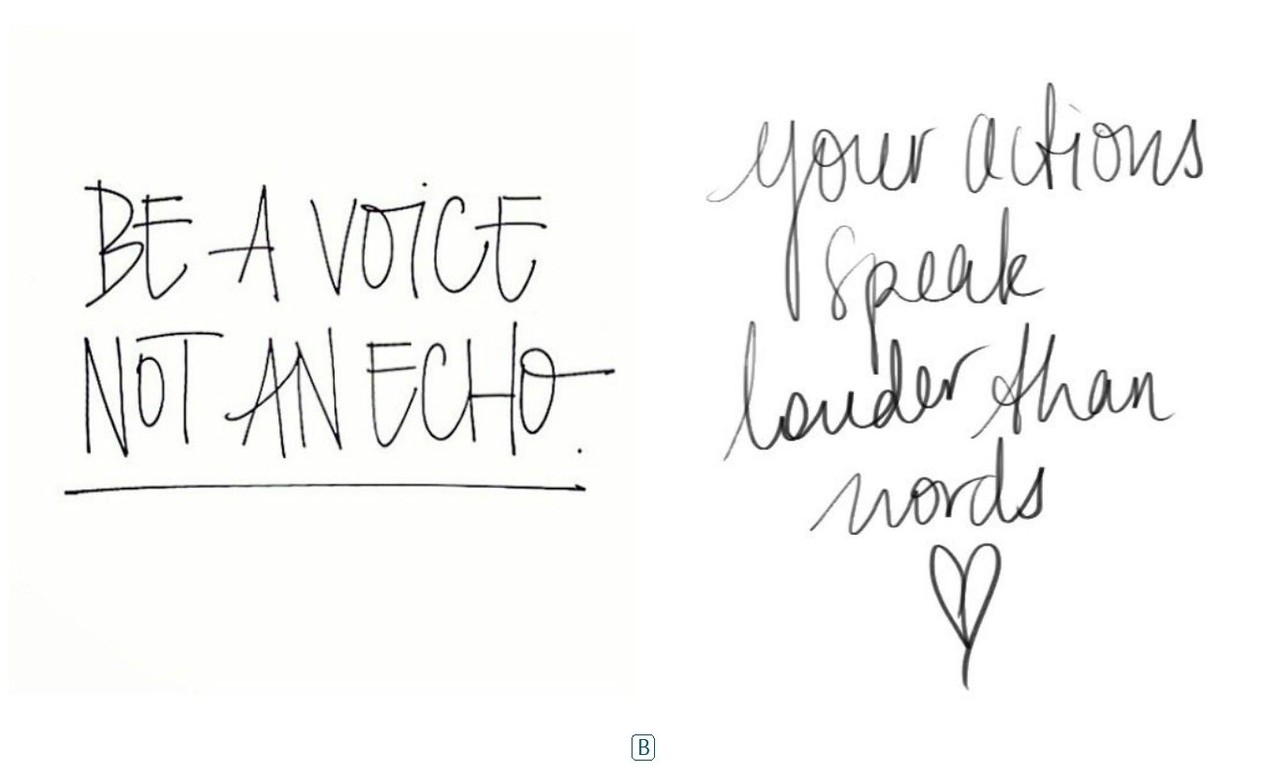 BE A VOiCE
NOT AN ECHO.
your actions
speak
louder than
words
B